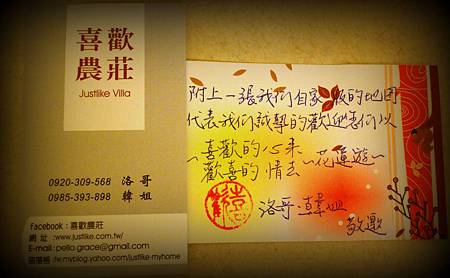 喜歡
農莊
Justlike Villa
0920-309-568 洛哥
0985-393-898 韓姐
Facebook：喜歡農莊
網 址 :www.justlike.com.tw/
E-mail:pello.grace@gmail.com
部落格 :tw.myblog.yahoo.com/justlike-myhome
附上一張我們自家版的地圖
代表我們誠摯的歡迎您們以
~喜歡的心來
歡喜的情去 ~花蓮遊~
洛哥.韓姐
敬邀